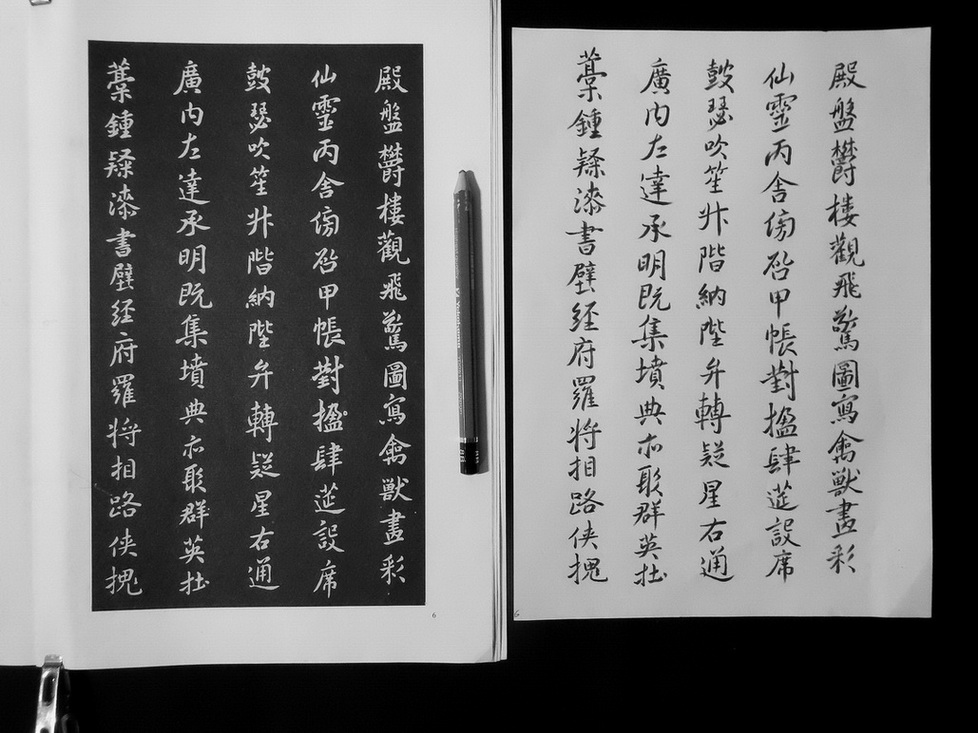 殿盤欝樓觀飛驚圖寫禽獸畫彩
仙靈丙舍傍启甲帳對楹肆筵設席
鼓瑟吹笙升階納陛弁轉疑星右通
廣內左達承明既集墳典亦聚群英杜
藁鍾隸漆書壁經府羅將相路俠槐
6
殿盤欝樓觀飛驚圖寫禽獸畫彩
仙靈丙舍傍启甲帳對楹肆筵設席
鼓瑟吹笙升階納陛弁轉疑星右通
廣內左達承明既集墳典亦聚群英杜
藁鍾隸漆書壁經府羅將相路俠槐
6